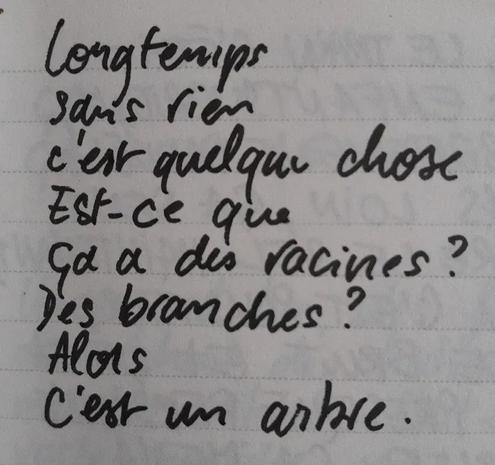 Longtemps
sans rien
c'est quelque chose
Est-ce que
ça a des racines ?
Des branches ?
Alors
C'est un arbre.